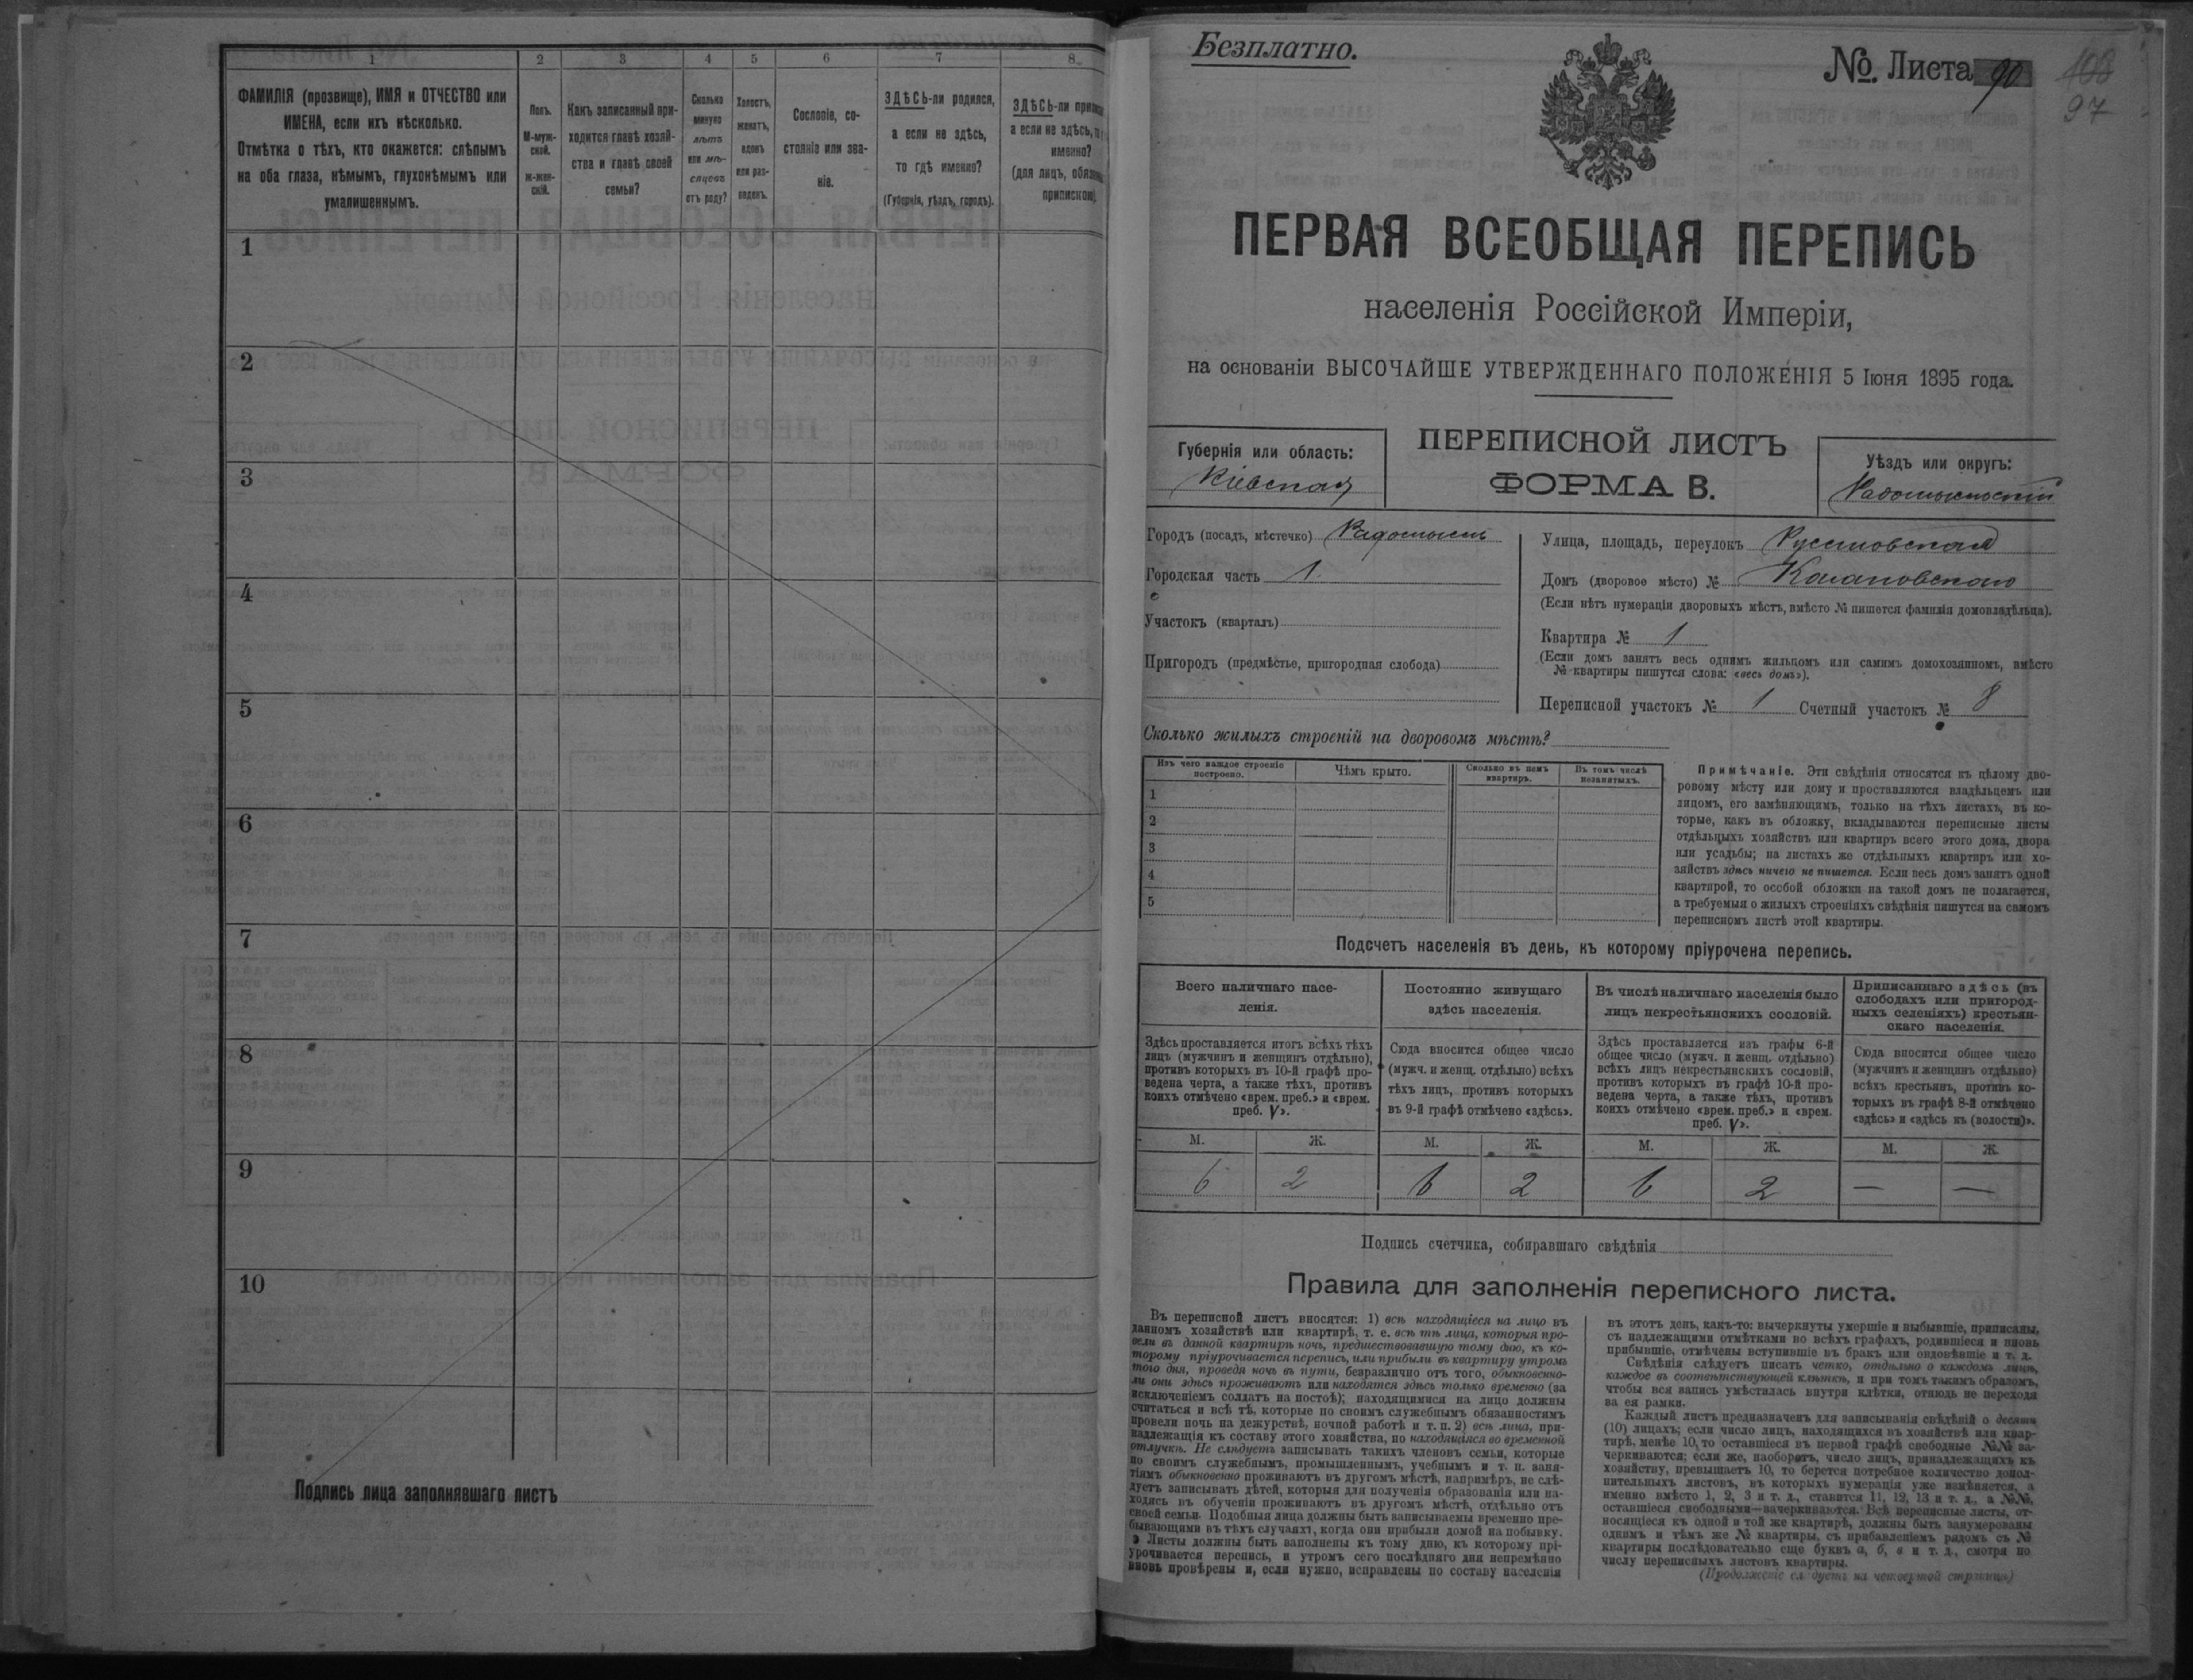 1 2 3 4 5 6 7 8
ФАМИЛІЯ (прозвище), ИМЯ и ОТЧЕСТВО или
ИМЕНА, если ихъ нѣсколько.
Отмѣтка о тѣхъ, кто окажется: слѣпымъ
на оба глаза, нѣмымъ, глухонѣмымъ или
умалишеннымъ.
Полъ.
М-муж-
ской.
Ж-жен-
скій.
Какъ записанный при-
ходится главѣ хозяй-
ства и главѣ своей
семьи?
Сколько
минуло
лѣтъ
или мѣ-
сяцевъ
отъ роду?
Холостъ,
женатъ,
вдовъ
или раз-
веденъ.
Сословіе, со-
стояніе или зва-
ніе.
ЗДѢСЬ-ли родился,
а если не здѣсь,
то гдѣ именно?
(Губернія, уѣздъ, городъ).
ЗДѢСЬ-ли
а если не здѣсь,
именно?
(для лицъ,
1
2
3
4
5
6
7
8
9
10
Подпись лица заполнявшаго листъ
Безплатно.
№. Листа 90
108
97
ПЕРВАЯ ВСЕОБЩАЯ ПЕРЕПИСЬ
населенія Россійской Имперіи,
на основаніи ВЫСОЧАЙШЕ УТВЕРЖДЕННАГО ПОЛОЖЕНІЯ 5 Іюня 1895 года.
Губернія или область:
Кіевская
ПЕРЕПИСНОЙ ЛИСТЪ
ФОРМА В.
Уѣздъ или округъ:
Радомысльскій
Городъ (посадъ, мѣстечко) Радомысль
Городская часть 1.
Участокъ (кварталъ)
Пригородъ (предмѣстье, пригородная слобода)
Улица, площадь, переулокъ
Домъ (дворовое мѣсто) №
(Если нѣтъ нумераціи дворовыхъ мѣстъ, вмѣсто № пишется фамилія домовладѣльца).
Квартира № 1
(Если домъ занятъ весь однимъ жильцомъ или самимъ домохозяиномъ, вмѣсто
№ квартиры пишутся слова: «весь домъ»).
Переписной участокъ № 1 Счетный участокъ № 8
Сколько жилыхъ строеній на дворовомъ мѣстѣ?
Изъ чего каждое строеніе
построено.
Чѣмъ крыто.
Сколько въ немъ
квартиръ.
Въ томъ числѣ
незанятыхъ.
1
2
3
4
5
Примѣчаніе. Эти свѣдѣнія относятся къ цѣлому дво-
ровому мѣсту или дому и проставляются владѣльцемъ или
лицомъ, его замѣняющимъ, только на тѣхъ листахъ, въ ко-
торые, какъ въ обложку, вкладываются переписные листы
отдѣльныхъ хозяйствъ или квартиръ всего этого дома, двора
или усадьбы; на листахъ же отдѣльныхъ квартиръ или хо-
зяйствъ здѣсь ничего не пишется. Если весь домъ занятъ одной
квартирой, то особой обложки на такой домъ не полагается,
а требуемыя о жилыхъ строеніяхъ свѣдѣнія пишутся на самомъ
переписномъ листѣ этой квартиры.
Подсчетъ населенія въ день, къ которому пріурочена перепись.
Всего наличнаго насе-
ленія.
Здѣсь проставляется итогъ всѣхъ тѣхъ
лицъ (мужчинъ и женщинъ отдѣльно),
противъ которыхъ въ 10-й графѣ про-
ведена черта, а также тѣхъ, противъ
коихъ отмѣчено «врем. преб.» и «врем.
преб. V».
Постоянно живущаго
здѣсь населенія.
Сюда вносится общее число
(мужч. и женщ. отдѣльно) всѣхъ
тѣхъ лицъ, противъ которыхъ
въ 9-й графѣ отмѣчено «здѣсь».
Въ числѣ наличнаго населенія было
лицъ некрестьянскихъ сословій.
Здѣсь проставляется изъ графы 6-й
общее число (мужч. и женщ. отдѣльно)
всѣхъ лицъ некрестьянскихъ сословій,
противъ которыхъ въ графѣ 10-й про-
ведена черта, а также тѣхъ, противъ
коихъ отмѣчено «врем. преб.» и «врем.
преб. V».
Приписаннаго здѣсь (въ
слободахъ или пригород-
ныхъ селеніяхъ) крестьян-
скаго населенія.
Сюда вносится общее число
(мужчинъ и женщинъ отдѣльно)
всѣхъ крестьянъ, противъ ко-
торыхъ въ графѣ 8-й отмѣчено
«здѣсь» и «здѣсь къ (волости)».
М. Ж. М. Ж. М. Ж. М. Ж.
6 2 6 2 6 2 — —
Подпись счетчика, собиравшаго свѣдѣнія
Правила для заполненія переписного листа.
Въ переписной листъ вносятся: 1) всѣ находящіеся на лицо въ
данномъ хозяйствѣ или квартирѣ, т. е. всѣ тѣ лица, которыя про-
вели въ данной квартирѣ ночь, предшествовавшую тому дню, къ ко-
торому пріурочивается перепись, или прибыли въ квартиру утромъ
того дня, проведя ночь въ пути, безразлично отъ того, обыкновенно-
ли они здѣсь проживаютъ или находятся здѣсь только временно (за
исключеніемъ солдатъ на постоѣ); находящимися на лицо должны
считаться и всѣ тѣ, которые по своимъ служебнымъ обязанностямъ
провели ночь на дежурствѣ, ночной работѣ и т. п. 2) всѣ лица, при-
надлежащія къ составу этого хозяйства, но находящіяся во временной
отлучкѣ. Не слѣдуетъ записывать такихъ членовъ семьи, которые
по своимъ служебнымъ, промышленнымъ, учебнымъ и т. п. заня-
тіямъ обыкновенно проживаютъ въ другомъ мѣстѣ, напримѣръ, не слѣ-
дуетъ записывать дѣтей, которыя для полученія образованія или на-
ходясь въ обученіи проживаютъ въ другомъ мѣстѣ, отдѣльно отъ
своей семьи. Подобныя лица должны быть записываемы временно пре-
бывающими въ тѣхъ случаяхъ, когда они прибыли домой на побывку.
Листы должны быть заполнены къ тому дню, къ которому прі-
урочивается перепись, и утромъ сего послѣдняго дня непремѣнно
вновь провѣрены и, если нужно, исправлены по составу населенія
въ этотъ день, какъ-то: вычеркнуты умершіе и выбывшіе, приписаны,
съ надлежащими отмѣтками во всѣхъ графахъ, родившіеся и вновь
прибывшіе, отмѣчены вступившіе въ бракъ или овдовѣвшіе и т. д.
Свѣдѣнія слѣдуетъ писать четко, отдѣльно о каждомъ лицѣ,
каждое въ соотвѣтствующей клѣткѣ, и при томъ такимъ образомъ,
чтобы вся запись умѣстилась внутри клѣтки, отнюдь не переходя
за ея рамки.
Каждый листъ предназначенъ для записыванія свѣдѣній о десяти
(10) лицахъ; если число лицъ, находящихся въ хозяйствѣ или квар-
тирѣ, менѣе 10, то оставшіеся въ первой графѣ свободные №№ за-
черкиваются; если же, наоборотъ, число лицъ, принадлежащихъ къ
хозяйству, превышаетъ 10, то берется потребное количество допол-
нительныхъ листовъ, въ которыхъ нумерація уже измѣняется, а
именно вмѣсто 1, 2, 3 и т. д., ставится 11, 12, 13 и т. д., а №№,
оставшіеся свободными—зачеркиваются. Всѣ переписные листы, от-
носящіеся къ одной и той же квартирѣ, должны быть занумерованы
однимъ и тѣмъ же № квартиры, съ прибавленіемъ рядомъ съ №
квартиры послѣдовательно еще буквъ а, б, в и т. д., смотря по
числу переписныхъ листовъ квартиры.
(Продолженіе слѣдуетъ на четвертой страницѣ)